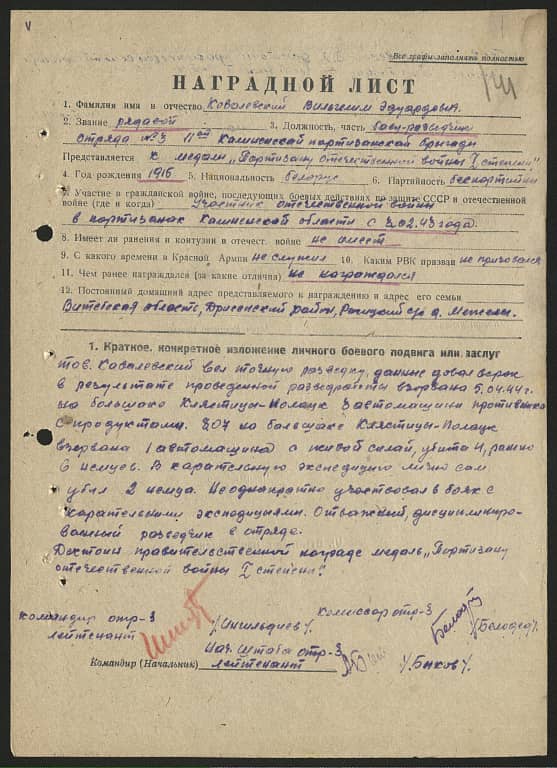 V
Все графы заполнять полностью
НАГРАДНОЙ ЛИСТ
1. Фамилия имя и отчество Ковалевский Вильгельм Эдуардович.
2. Звание рядовой 3. Должность, часть боец-разведчик
отряда №3 11ой Калининской партизанской бригады
Представляется к медали „Партизану отечественной войны I степени".
4. Год рождения 1916 5. Национальность белорус 6. Партийность беспартийный
7. Участие в гражданской войне, последующих боевых действиях по защите СССР и отечественной
войне (где и когда) Участник отечественной войны
в партизанах Калининской области с 2.02.43 года.
8. Имеет ли ранения и контузии в отечест. войне не имеет
9. С какого времени в Красной Армии не служил 10. Каким РВК призван не призывался
11. Чем ранее награждался (за какие отличия) не награждался
12. Постоянный домашний адрес представляемого к награждению и адрес его семьи
Витебская область, Дрисенский район, д.
1. Краткое, конкретное изложение личного боевого подвига или заслуг
тов. Ковалевский вел точную разведку, данные давал верно
в результате проведенной разведработы взорвана 5.04.44г.
на большаке Клястицы-Полоцк автомашина противника
с продуктами. на большаке Клястицы-Полоцк
взорвана 1 автомашина с живой силой, убито 4, ранено
6 немцев. В карательную экспедицию лично сам
убил 2 немца. Неоднократно участвовал в боях с
карательными экспедициями. Отважный, дисциплиниро-
ванный разведчик в отряде.
Достоин правительственной награде медаль „Партизану
отечественной войны I степени".
Командир отр-3 Комиссар отр-3
лейтенант
Нач. штаба отр-3
Командир (Начальник) лейтенант /Быков/.